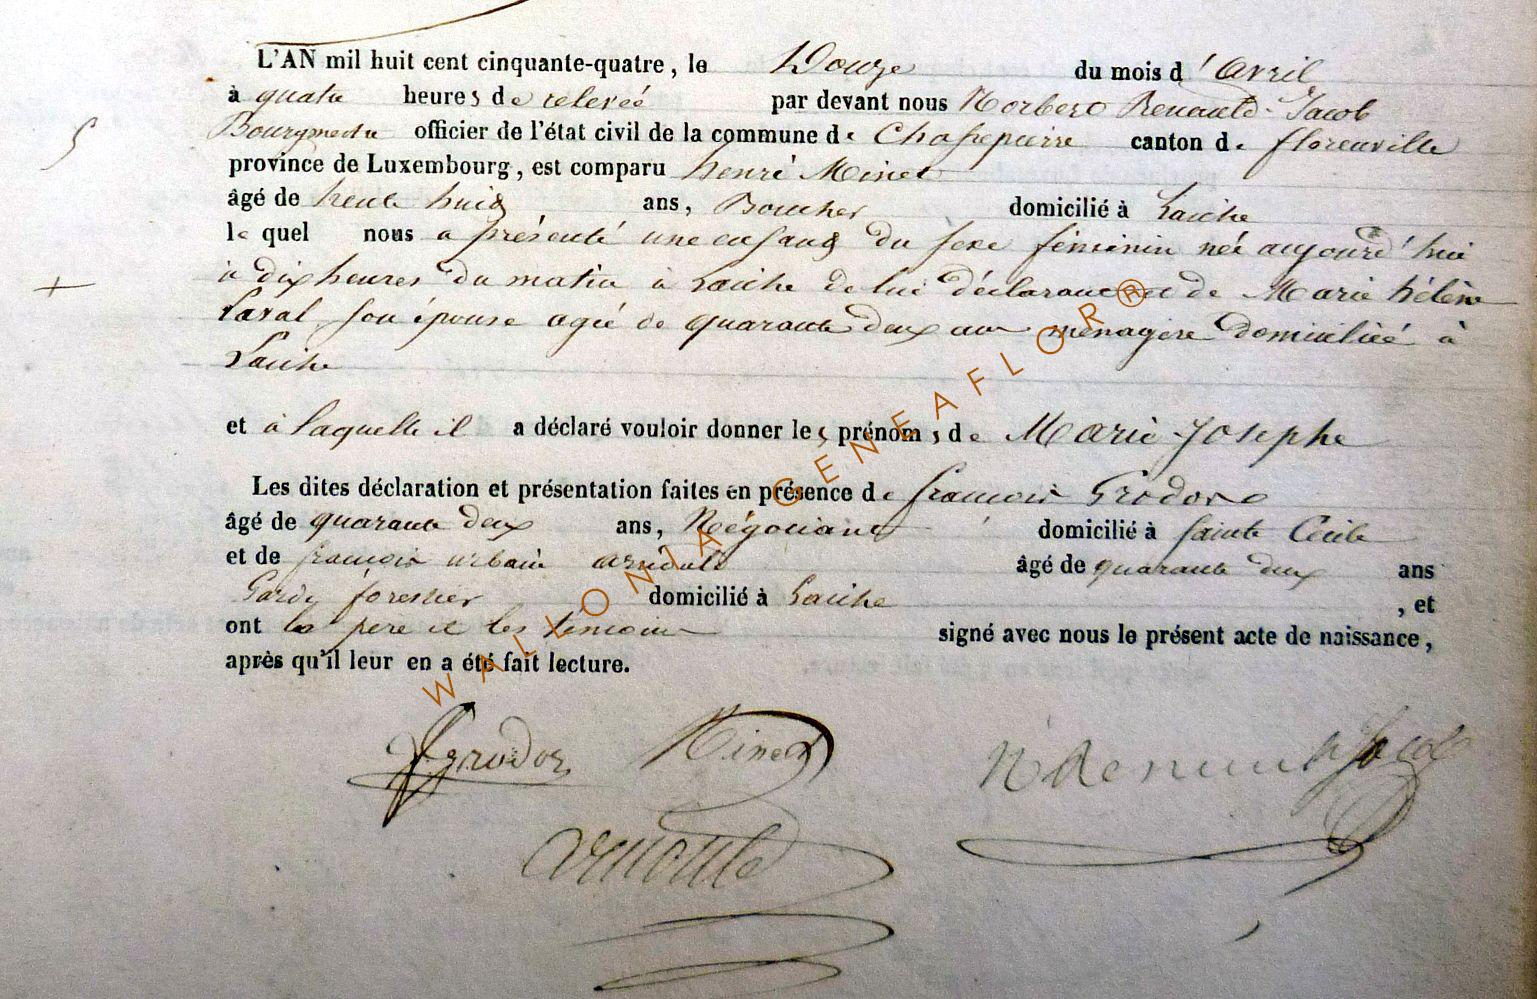 L'AN mil huit cent cinquante-quatre, le Douze du mois d'avril
à quatre heures de relevéé par devant nous Norbert Renauld-Jacob
Bourgmestre officier de l'état civil de la commune de Chassepierre canton de florenville
province de Luxembourg, est comparu henri Minet
âgé de trente huit ans, Boucher domicilié à Laiche
le quel nous a présenté une enfant du sexe féminin née aujourd'hui
à dix heures du matin à Laiche de lui déclarant et de Marie hélène
Laval son épouse agée de quarante deux ans menagère domiciliée à
Laiche
et à laquelle il a déclaré vouloir donner les prénoms de Marie-Josephe
Les dites déclaration et présentation faites en présence de francois Grodos
âgé de quarante deux ans, Négociant domicilié à Sainte Cécile
et de francois urbain arnould âgé de quarante deux ans
Garde forestier domicilié à Laiche, et
ont le père et les témoins signé avec nous le présent acte de naissance,
après qu'il leur en a été fait lecture.
WALLONIA GENEAFLOR®
f grodos Minet N Renauld Jacob
arnould